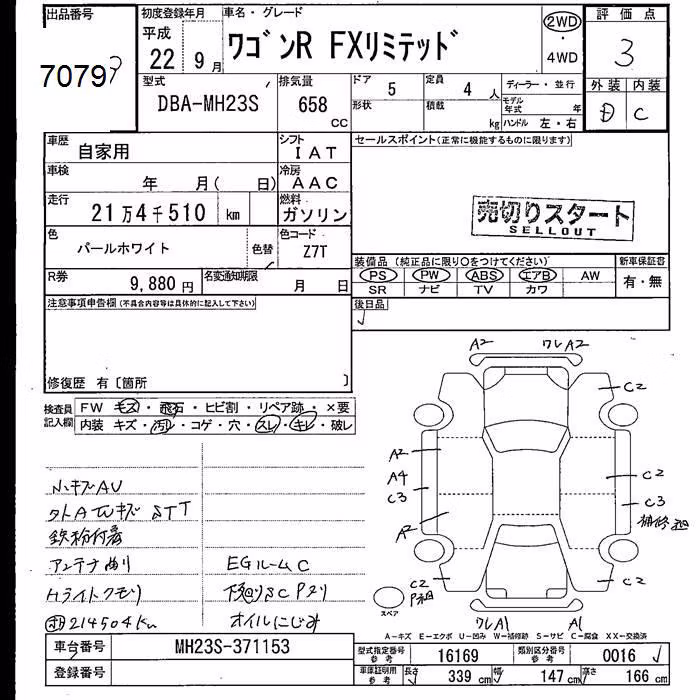 出品番号
7079
初度登録年月
平成
22年 9月
車名・グレード
ワゴンR FXリミテッド
2WD
・
4WD
評価点
3
外装 内装
D C
型式
DBA-MH23S
排気量
658
CC
ドア
5
形状
定員
4人
積載
kg
ディーラー・並行
モデル年式 年
ハンドル 左・右
車歴
自家用
シフト
IAT
車検
年 月( 日)
冷房
AAC
走行
21万4千510 km
燃料
ガソリン
色
パールホワイト
色替
色コード
Z7T
R券
9,880円
名変通知期限
月 日
セールスポイント(正常に機能するものに限ります)
売切りスタート
SELLOUT
装備品(純正品に限り○をつけてください)
PS PW ABS エアB AW
SR ナビ TV カワ
新車保証書
有・無
後日品
注意事項申告欄(不具合内容等は具体的に記入して下さい)
修復歴 有〔箇所 〕
検査員
記入欄
FW キズ・飛石・ヒビ割・リペア跡・×要
内装 キズ・汚れ・コゲ・穴・スレ・キレ・破レ
小キズAU
鉄粉付着
アンテナ曲り
Hライトクモリ
214504Km
EGルームC
オイルにじみ
A2 ワレA2
C2
A2
A4
C3
A2
C2
C3
補修
C2
C2
ワレA1 A1
スペア
A-キズ E-エクボ U-凹み W-補修跡 S-サビ C-腐食 XX-交換済
車台番号
MH23S-371153
登録番号
型式指定番号
参考
16169
類別区分番号
参考
0016
車庫証明用
参考
長さ 339 cm 幅 147 cm 高さ 166 cm